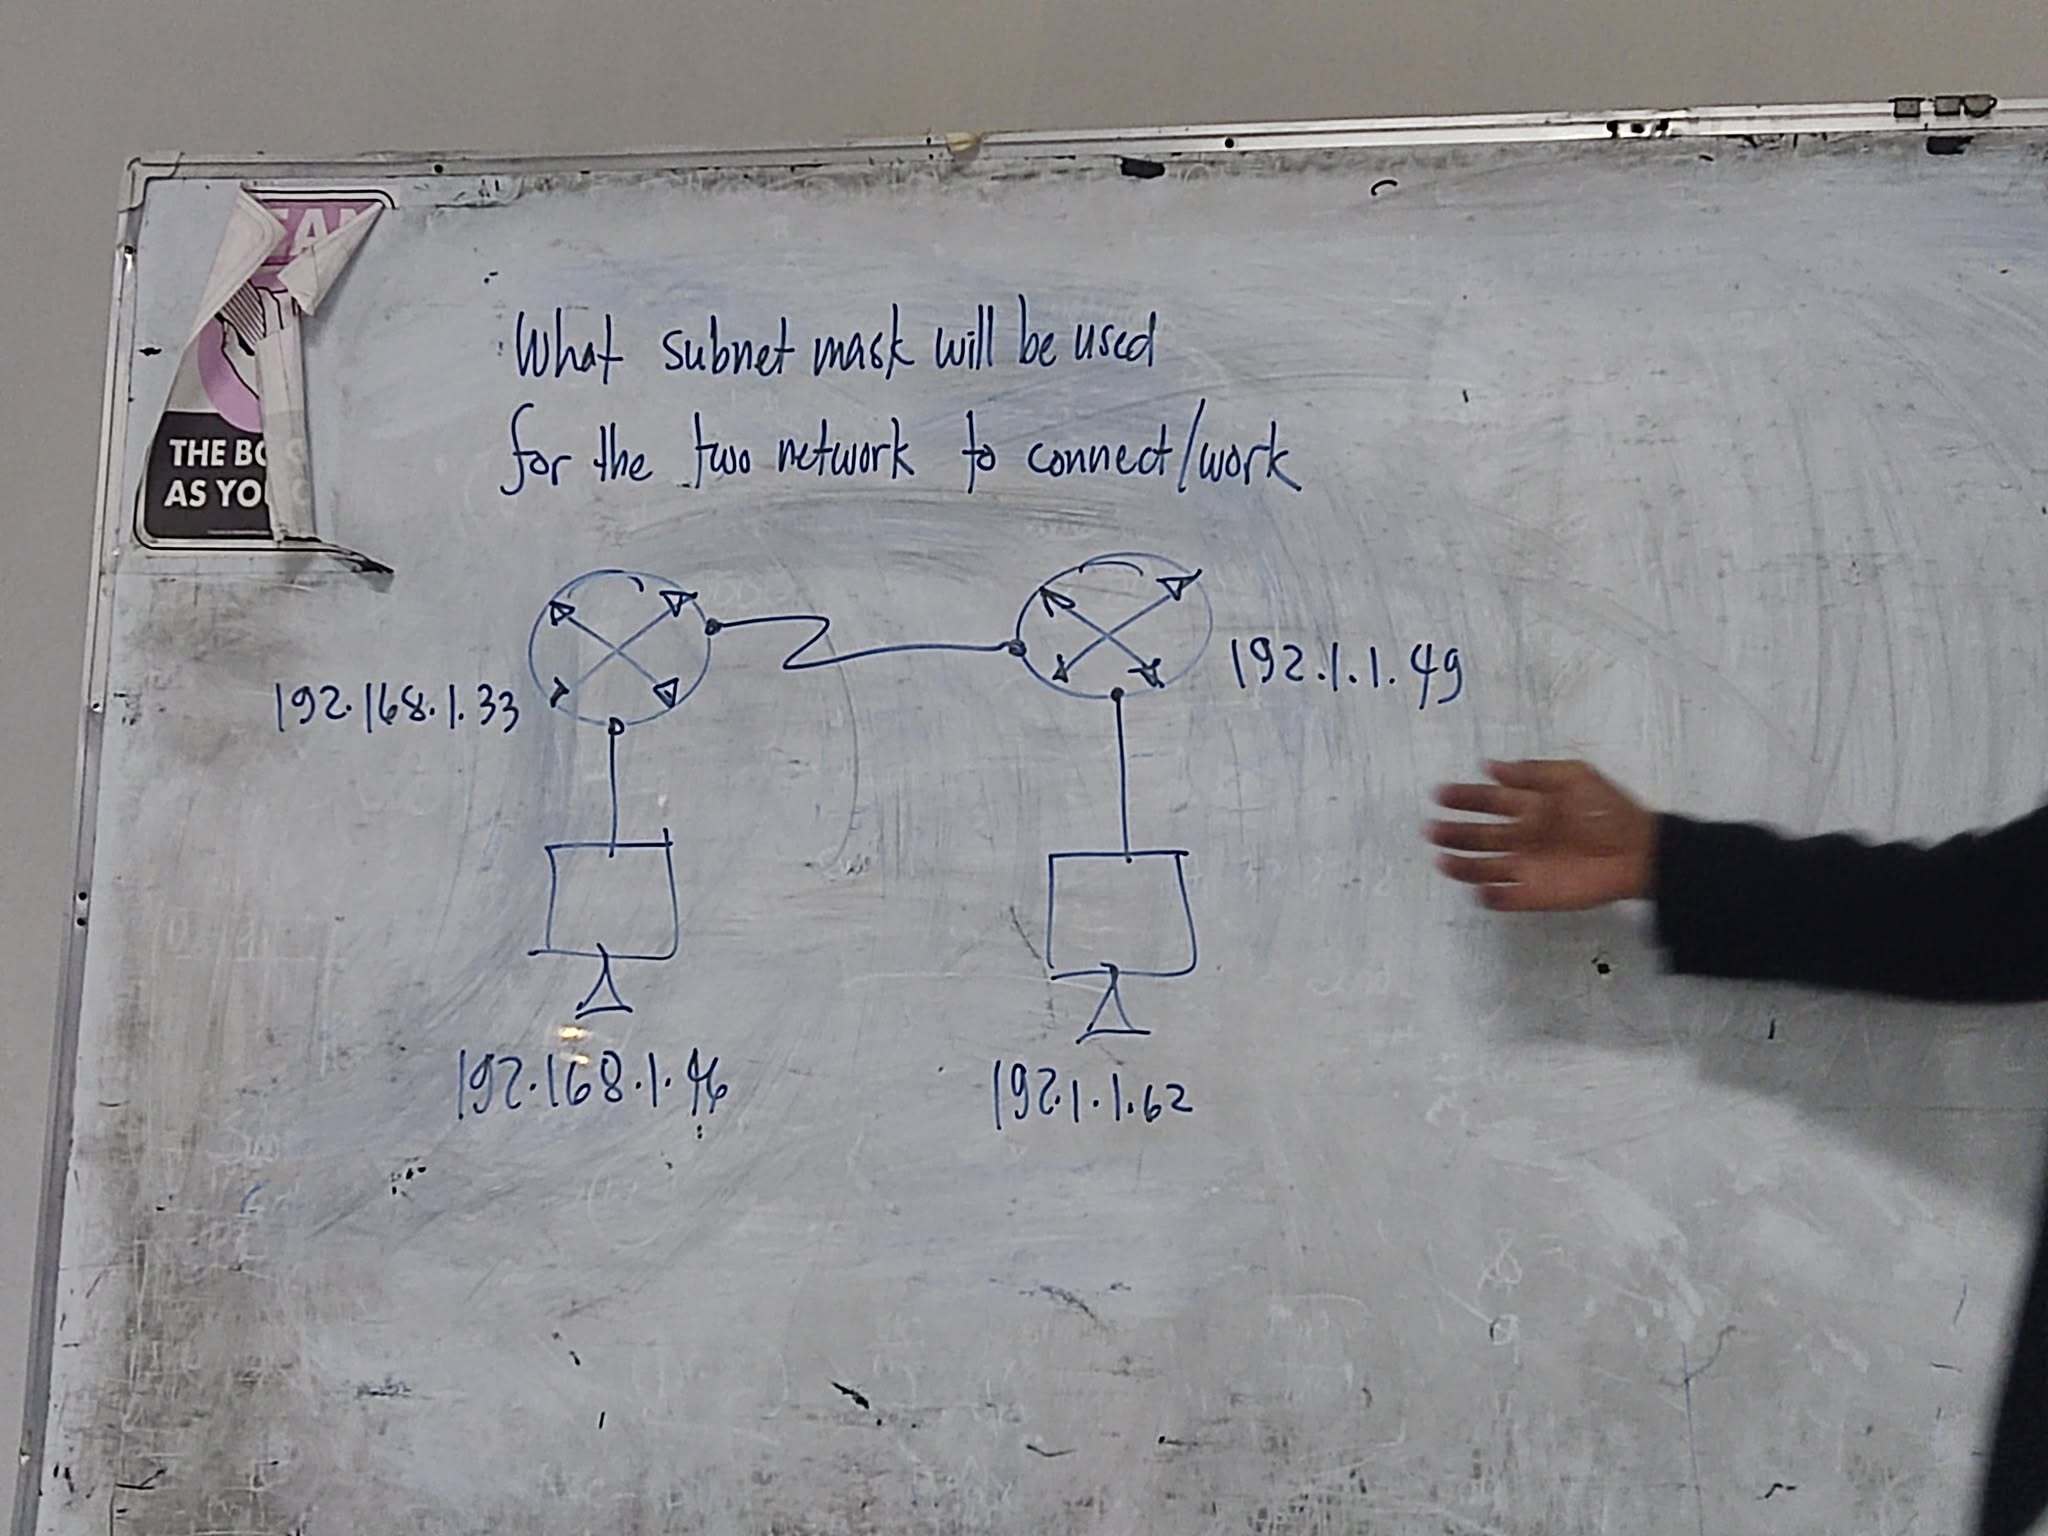 What subnet mask will be used
for the two network to connect/work
192.168.1.33
192.1.1.49
192.168.1.46
192.1.1.62
THE
AS